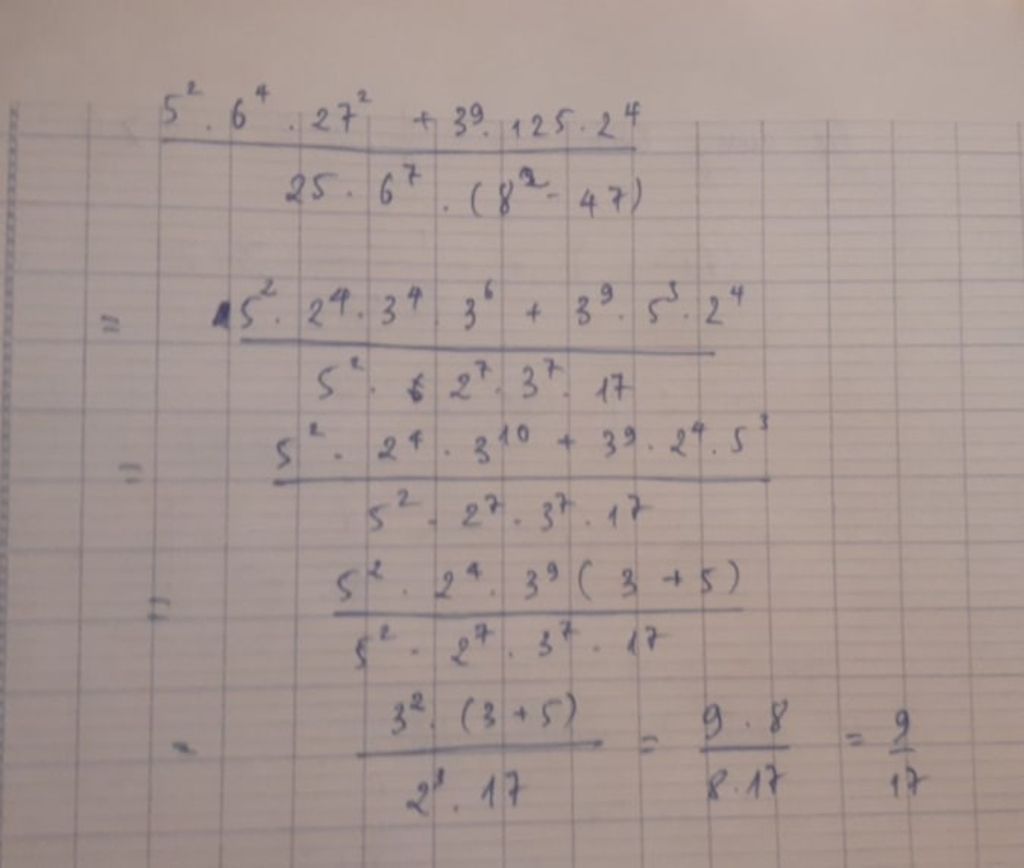 5² · 6⁴ · 27² + 3⁹ · 125 · 2⁴
25 · 6⁷ · (8² - 47)
= 5² · 2⁴ · 3⁴ · 3⁶ + 3⁹ · 5³ · 2⁴
5² · 2⁷ · 3⁷ · 17
= 5² · 2⁴ · 3¹⁰ + 3⁹ · 2⁴ · 5³
5² · 2⁷ · 3⁷ · 17
= 5² · 2⁴ · 3⁹ ( 3 + 5 )
5² · 2⁷ · 3⁷ · 17
= 3² · (3 + 5) = 9 · 8 = 9
2³ · 17 8 · 17 17